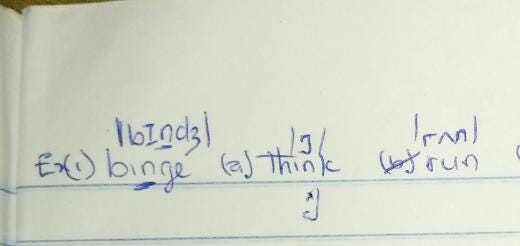 |bɪndʒ| |ŋ| |rʌn|
Ex(1) binge (a) think (b) run (
ŋ